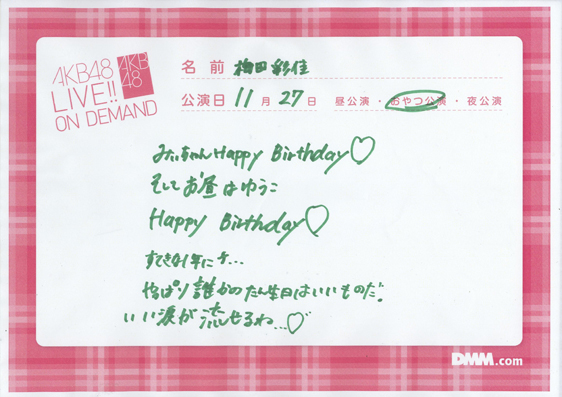 AKB48
LIVE!!
ON DEMAND
AKB
48
名前 梅田彩佳
公演日 11月27日 昼公演・おやつ公演・夜公演
みぃちゃんHappy Birthday♡
そしてお昼はゆうこ
Happy Birthday♡
すてきな1年に…
やっぱり誰かのたん生日はいいものだ!
いい涙が流せるね…♡
DMM.com